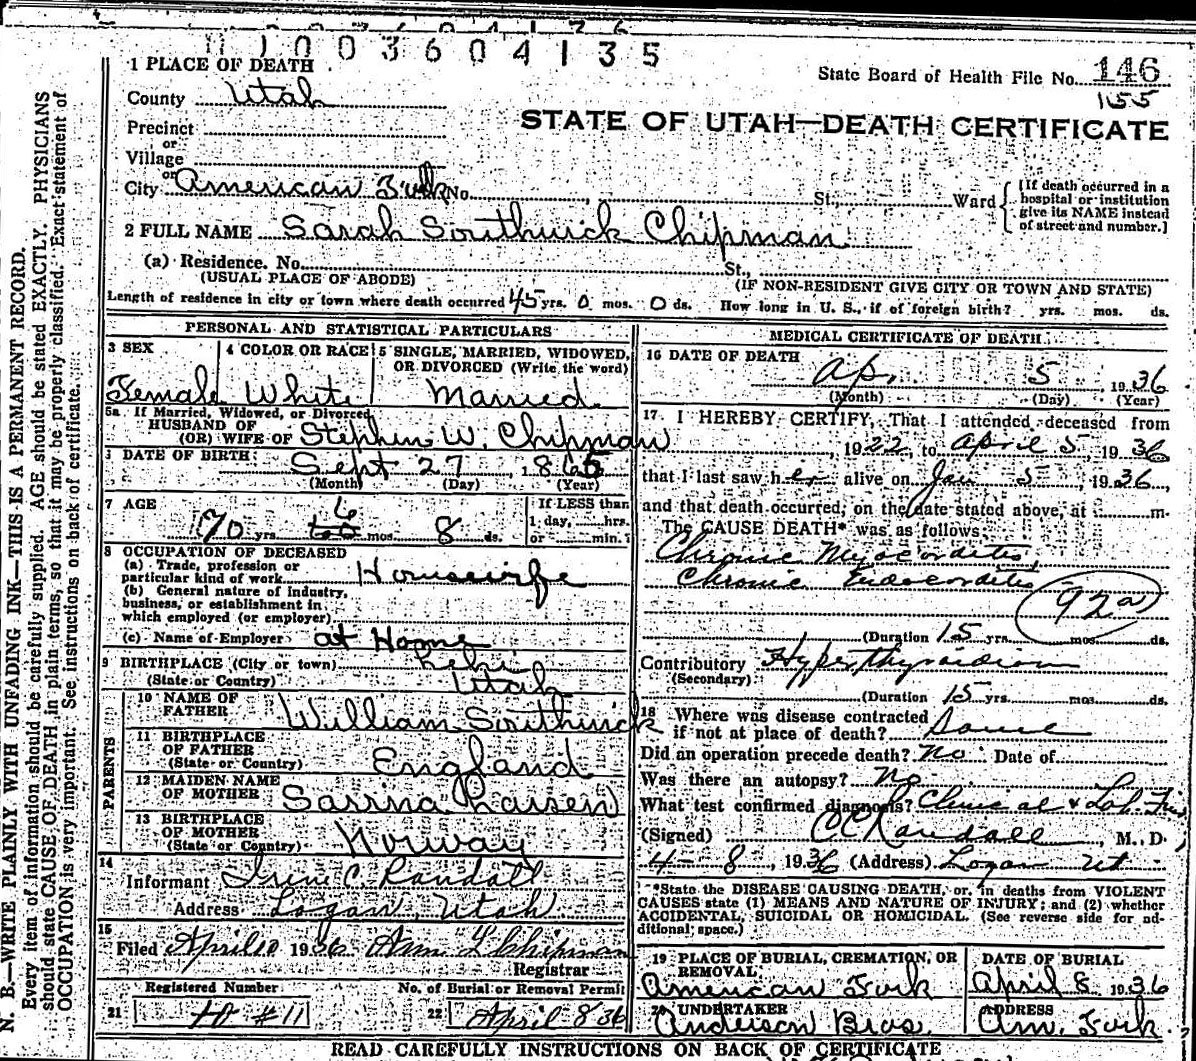 1003604135
1 PLACE OF DEATH
State Board of Health File No. 146
155
County Utah
STATE OF UTAH—DEATH CERTIFICATE
Precinct
or
Village
or
City American Fork No. St., Ward [If death occurred in a hospital or institution give its NAME instead of street and number.]
2 FULL NAME Sarah Southwick Chipman
(a) Residence. No. St.,
(USUAL PLACE OF ABODE) (IF NON-RESIDENT GIVE CITY OR TOWN AND STATE)
Length of residence in city or town where death occurred 45 yrs. 0 mos. 0 ds. How long in U. S., if of foreign birth? yrs. mos. ds.
PERSONAL AND STATISTICAL PARTICULARS
3 SEX
Female
4 COLOR OR RACE
White
5 SINGLE, MARRIED, WIDOWED, OR DIVORCED (Write the word)
Married
5a If Married, Widowed, or Divorced
HUSBAND OF
(OR) WIFE OF Stephen W. Chipman
DATE OF BIRTH:
Sept 27 1865
(Month) (Day) (Year)
7 AGE
70 yrs. 6 mos. 8 ds.
If LESS than
1 day, hrs.
or min.
8 OCCUPATION OF DECEASED
(a) Trade, profession or
particular kind of work Housewife
(b) General nature of industry,
business, or establishment in
which employed (or employer)
(c) Name of Employer at Home
9 BIRTHPLACE (City or town) Lehi
(State or Country) Utah
PARENTS
10 NAME OF
FATHER William Southwick
11 BIRTHPLACE
OF FATHER
(State or Country) England
12 MAIDEN NAME
OF MOTHER Sarina Larsen
13 BIRTHPLACE
OF MOTHER
(State or Country) Norway
14
Informant Irene C. Randall
Address Logan, Utah
15
Filed April 10 1936 Chipman
Registrar
Registered Number
21 #11
No. of Burial or Removal Permit
22 April 8 36
MEDICAL CERTIFICATE OF DEATH
16 DATE OF DEATH
Ap. 5, 1936
(Month) (Day) (Year)
17. I HEREBY CERTIFY, That I attended deceased from
, 1922 to April 5, 1936
that I last saw her alive on Jan 5, 1936,
and that death occurred, on the date stated above, at m.
The CAUSE DEATH* was as follows:
Chronic Myocarditis
Chronic Endocarditis
92a
(Duration 15 yrs. mos. ds.
Contributory Hyperthyroidism
(Secondary)
(Duration 15 yrs. mos. ds.
18 Where was disease contracted
if not at place of death? Same
Did an operation precede death? No Date of
Was there an autopsy? No
What test confirmed diagnosis? Clinical & Lab.
(Signed) Randall, M. D.
4-8, 1936 (Address) Logan Ut
*State the DISEASE CAUSING DEATH, or, in deaths from VIOLENT
CAUSES state (1) MEANS AND NATURE OF INJURY; and (2) whether
ACCIDENTAL, SUICIDAL OR HOMICIDAL. (See reverse side for ad-
ditional space.)
19 PLACE OF BURIAL, CREMATION, OR
REMOVAL
American Fork
DATE OF BURIAL
April 8 1936
UNDERTAKER
Anderson Bros.
ADDRESS
Am. Fork
READ CAREFULLY INSTRUCTIONS ON BACK OF CERTIFICATE
N. B.—WRITE PLAINLY WITH UNFADING INK—THIS IS A PERMANENT RECORD.
Every item of information should be carefully supplied. AGE should be stated EXACTLY. PHYSICIANS
should state CAUSE OF DEATH in plain terms, so that it may be properly classified. Exact statement of
OCCUPATION is very important. See instructions on back of certificate.